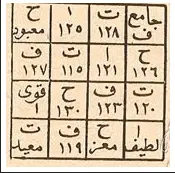 جامع ت ا ح
ف ١٢٨ ١٢٥ معبود
ح ا ت ف
١٢٦ ١٢١ ١١٥ ١٢٧
ت ف ح قوى
١٢٠ ١٢٣ ١٣٠ ا
ا ح ف ت
لطيف معز ١١٩ معيد